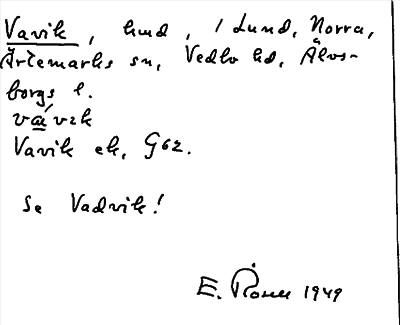 Vavik, hmd, i Lund, Norra,
Ärtemarks sn, Vedbo hd, Älvs-
borgs l.
vavik
Vavik ek. G62.
Se Vadvik!
E. 1949